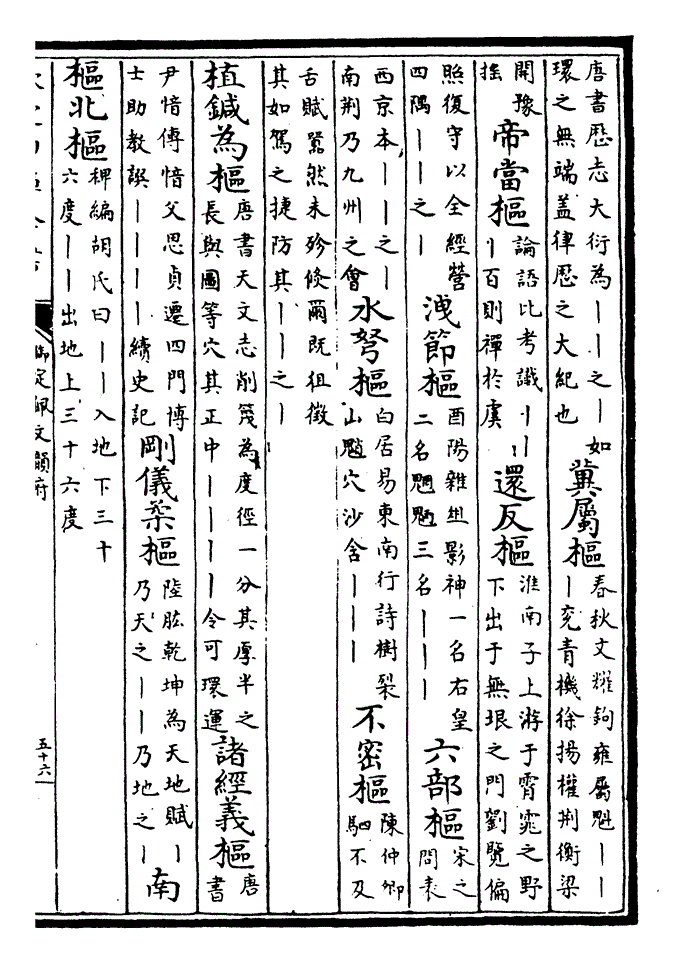 唐書歷志大衍為丨丨之丨如
環之無端葢律歷之大紀也
冀屬樞
春秋文耀鉤雍屬魁丨丨
丨兖青機徐揚權荆衡梁
開豫
揺
帝當樞
論語比考讖丨丨
丨百則禪於虞
還反樞
淮南子上游于霄雿之野
下出于無垠之門劉覽偏
照復守以全經營
四隅丨丨之丨
洩節樞
酉陽雜俎影神一名右皇
二名魍魎三名丨丨丨
六部樞
宋之
問表
西京本丨丨之丨
南荆乃九州之會
水弩樞
白居易東南行詩樹裂
山魈穴沙含丨丨丨
不密樞
陳仲卿
駟不及
舌賦然未殄倐爾既徂徵
其如駕之捷防其丨丨之丨
植鍼為樞
唐書天文志削篾為度徑一分其厚半之
長與圖等穴其正中丨丨丨丨令可環運
諸經義樞
唐
書
尹愔傳愔父思貞遷四門博
士助教譔丨丨丨丨續史記
剛儀柔樞
陸肱乾坤為天地賦丨
乃天之丨丨乃地之丨
南
樞北樞
稗編胡氏曰丨丨入地下三十
六度丨丨出地上三十六度
御定佩文韻府
五十六